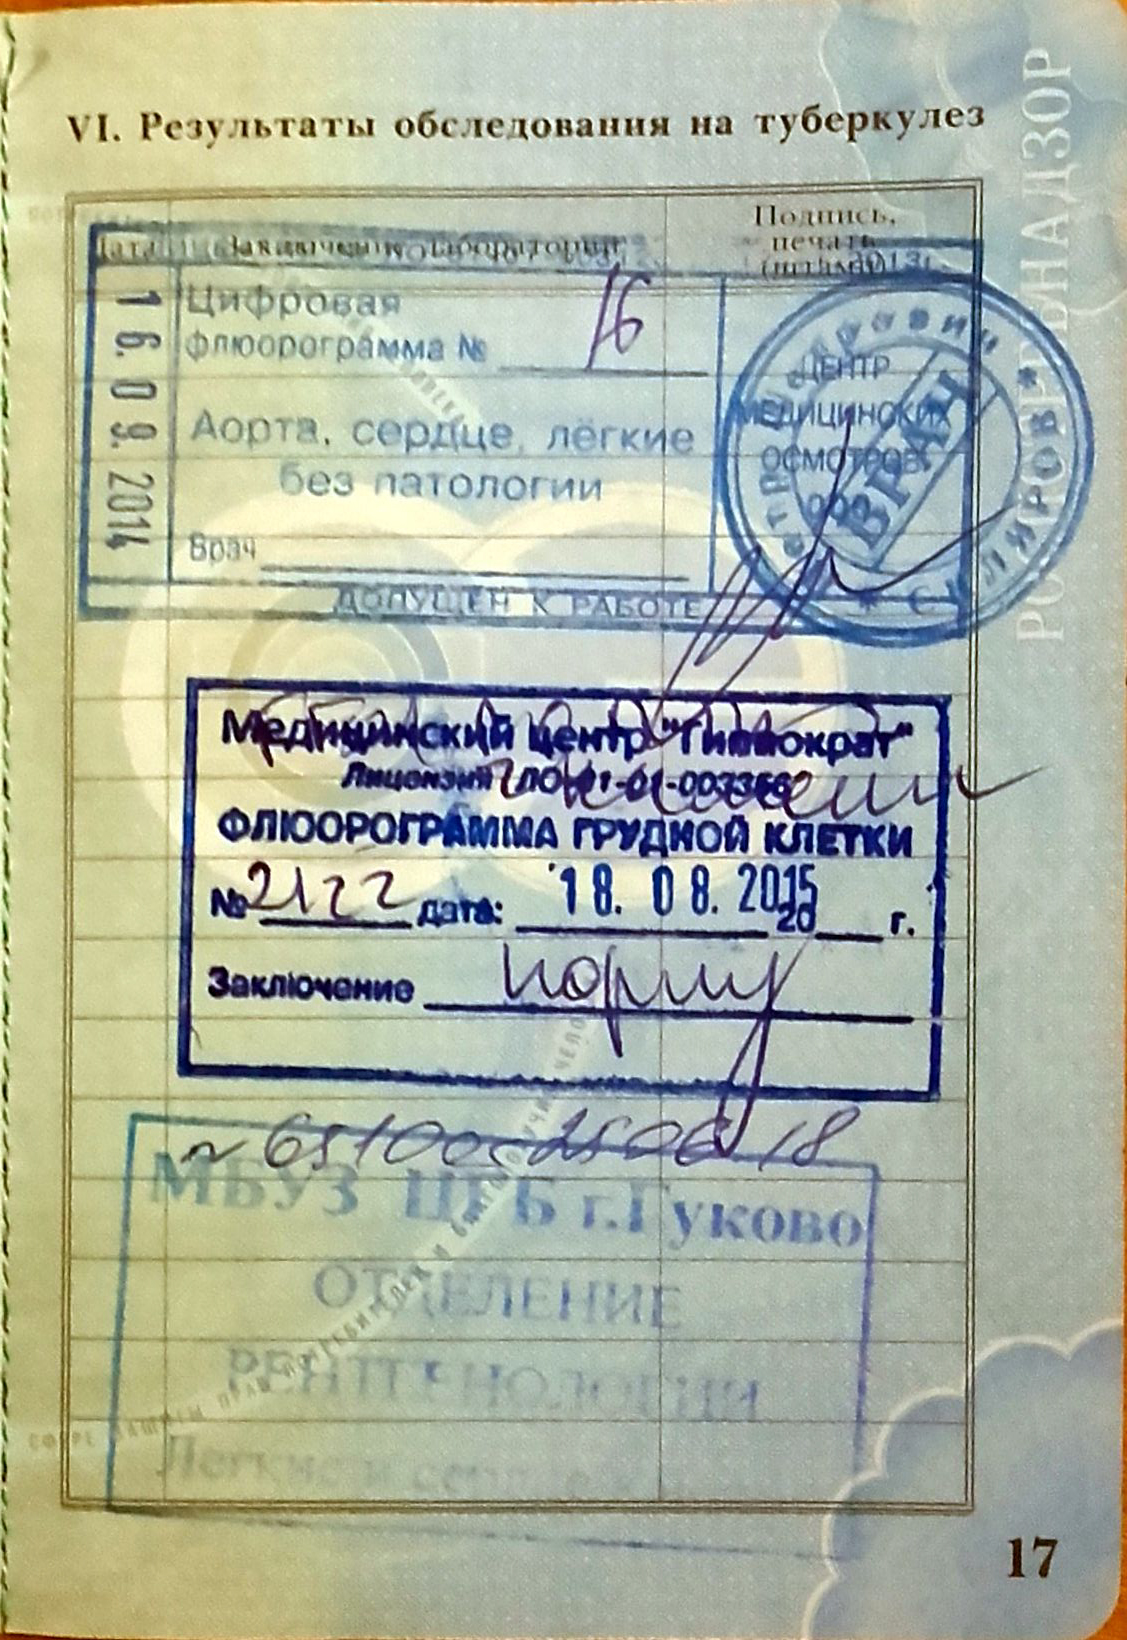 VI. Результаты обследования на туберкулез
Дата
Заключение лаборатории
Подпись,
печать
(штамп)
16.09.2014
Цифровая
флюорограмма № 16
Аорта, сердце, лёгкие
без патологии
Врач
ДОПУЩЕН К РАБОТЕ
ЦЕНТР
МЕДИЦИНСКИХ
ОСМОТРОВ
ООО
ВРАЧ
Медицинский центр "Гиппократ"
Лицензия ЛО-61-01-003366
ФЛЮОРОГРАММА ГРУДНОЙ КЛЕТКИ
№ 2122 дата: 18. 08. 2015 20 г.
Заключение норма
18
МБУЗ ЦГБ г.Гуково
ОТДЕЛЕНИЕ
РЕНТГЕНОЛОГИИ
Легкие и сердце
РОСПОТРЕБНАДЗОР
17